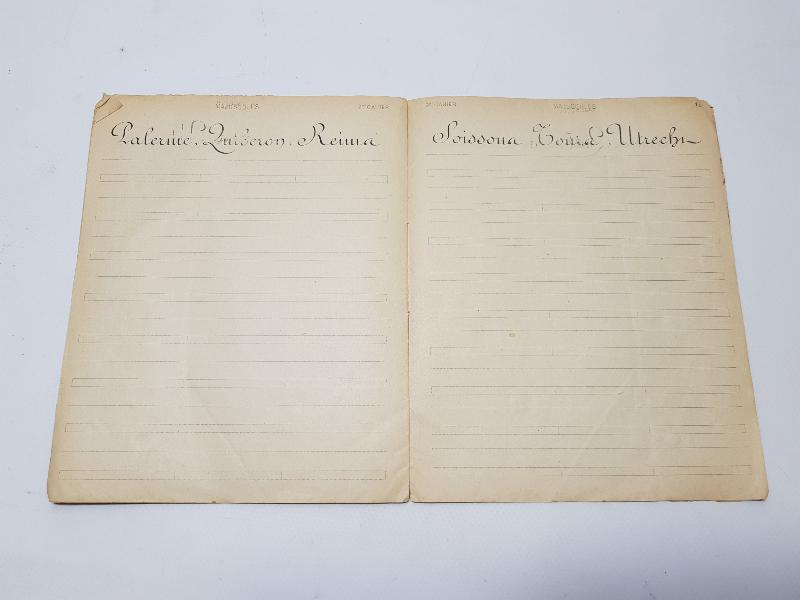 MAJUSCULES 2e CAHIER
Palerme. Quiberon. Reims
2e CAHIER MAJUSCULES
Soissons. Tours. Utrecht